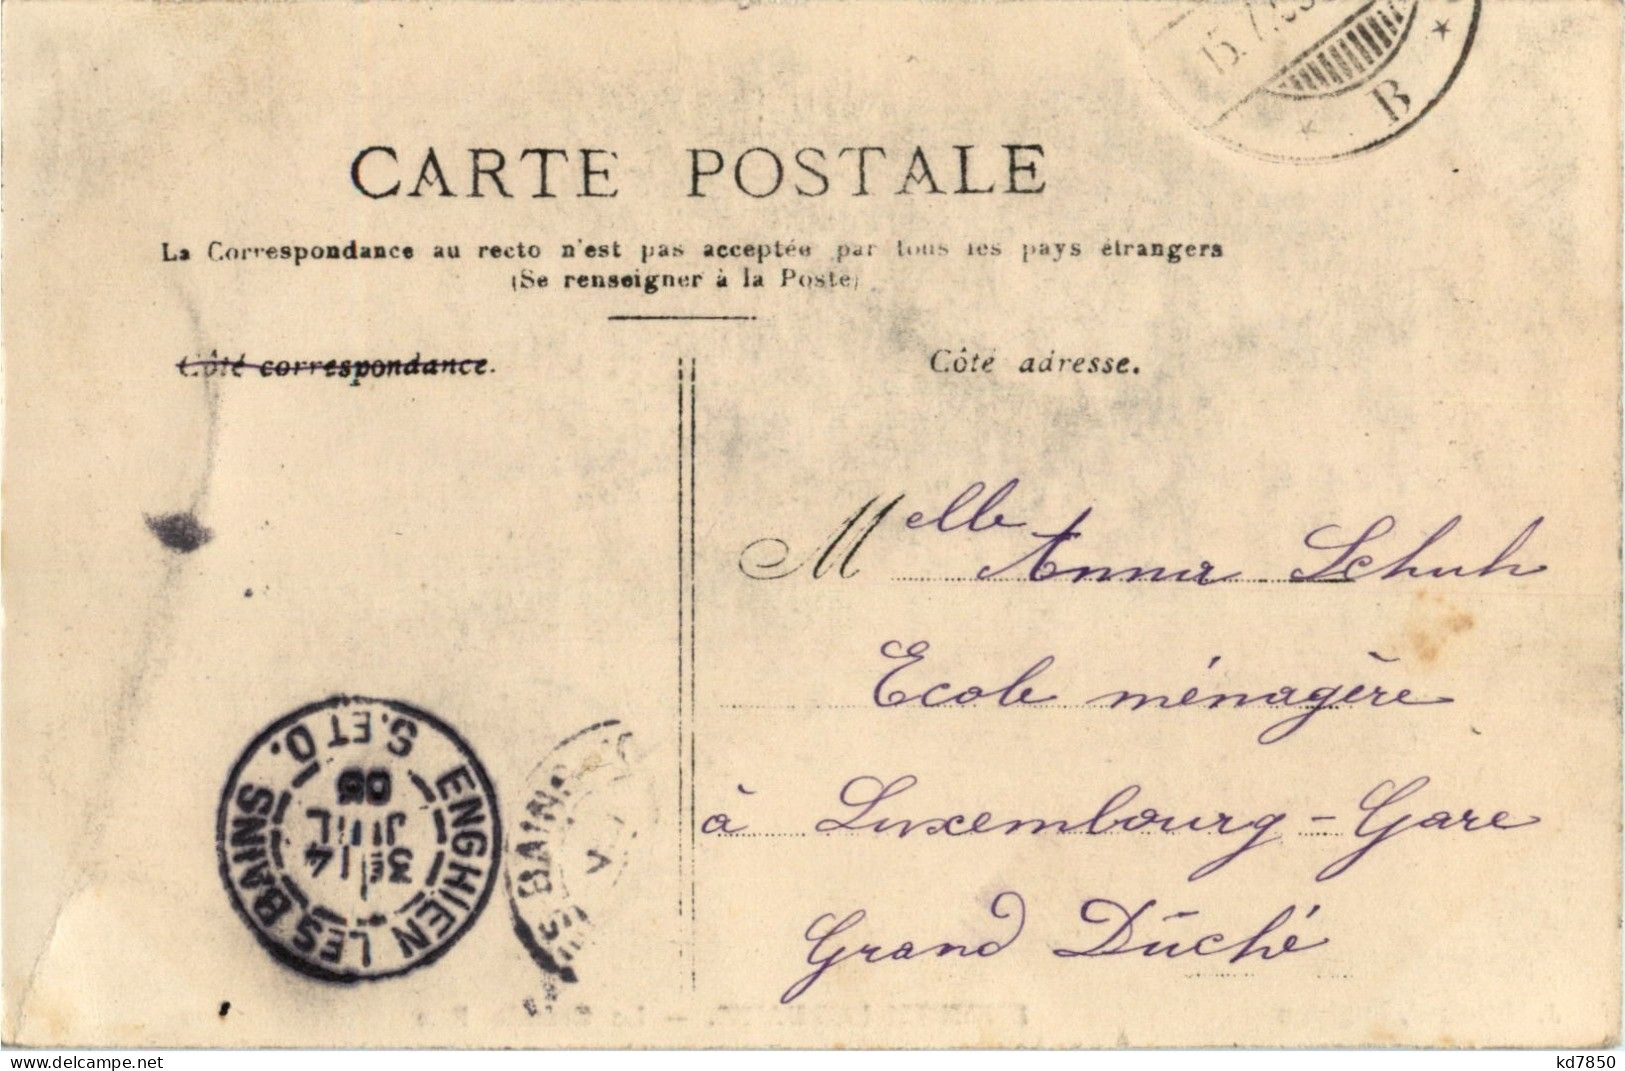 15.7.
B
CARTE POSTALE
La Correspondance au recto n'est pas acceptée par tous les pays étrangers
(Se renseigner à la Poste)
Côté correspondance.
Côté adresse.
Melle Anna Schuh
Ecole ménagère
à Luxembourg-Gare
Grand Dūché
ENGHIEN LES BAINS
S. ET O.
BAINS
delcampe.net
kd7850